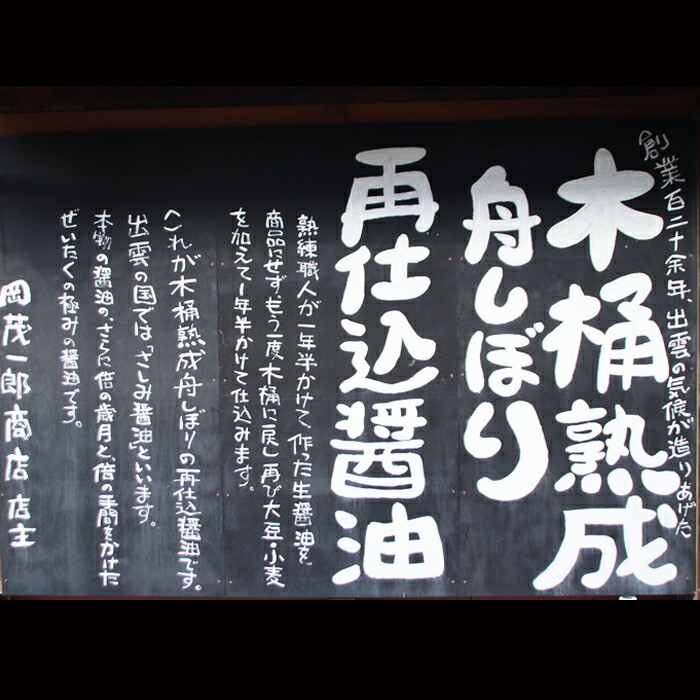 創業百二十余年、出雲の気候が造りあげた
木桶熟成
舟しぼり
再仕込醤油
熟練職人が一年半かけて作った生醤油を
商品にせずもう一度木桶に戻し再び大豆・小麦
を加えて1年半かけて仕込みます。
これが木桶熟成舟しぼりの再仕込醤油です。
出雲の国では、「さしみ醤油」といいます。
本物の醤油の、さらに倍の歳月と、倍の手間をかけた
ぜいたくの極みの醤油です。
岡茂一郎商店 店主